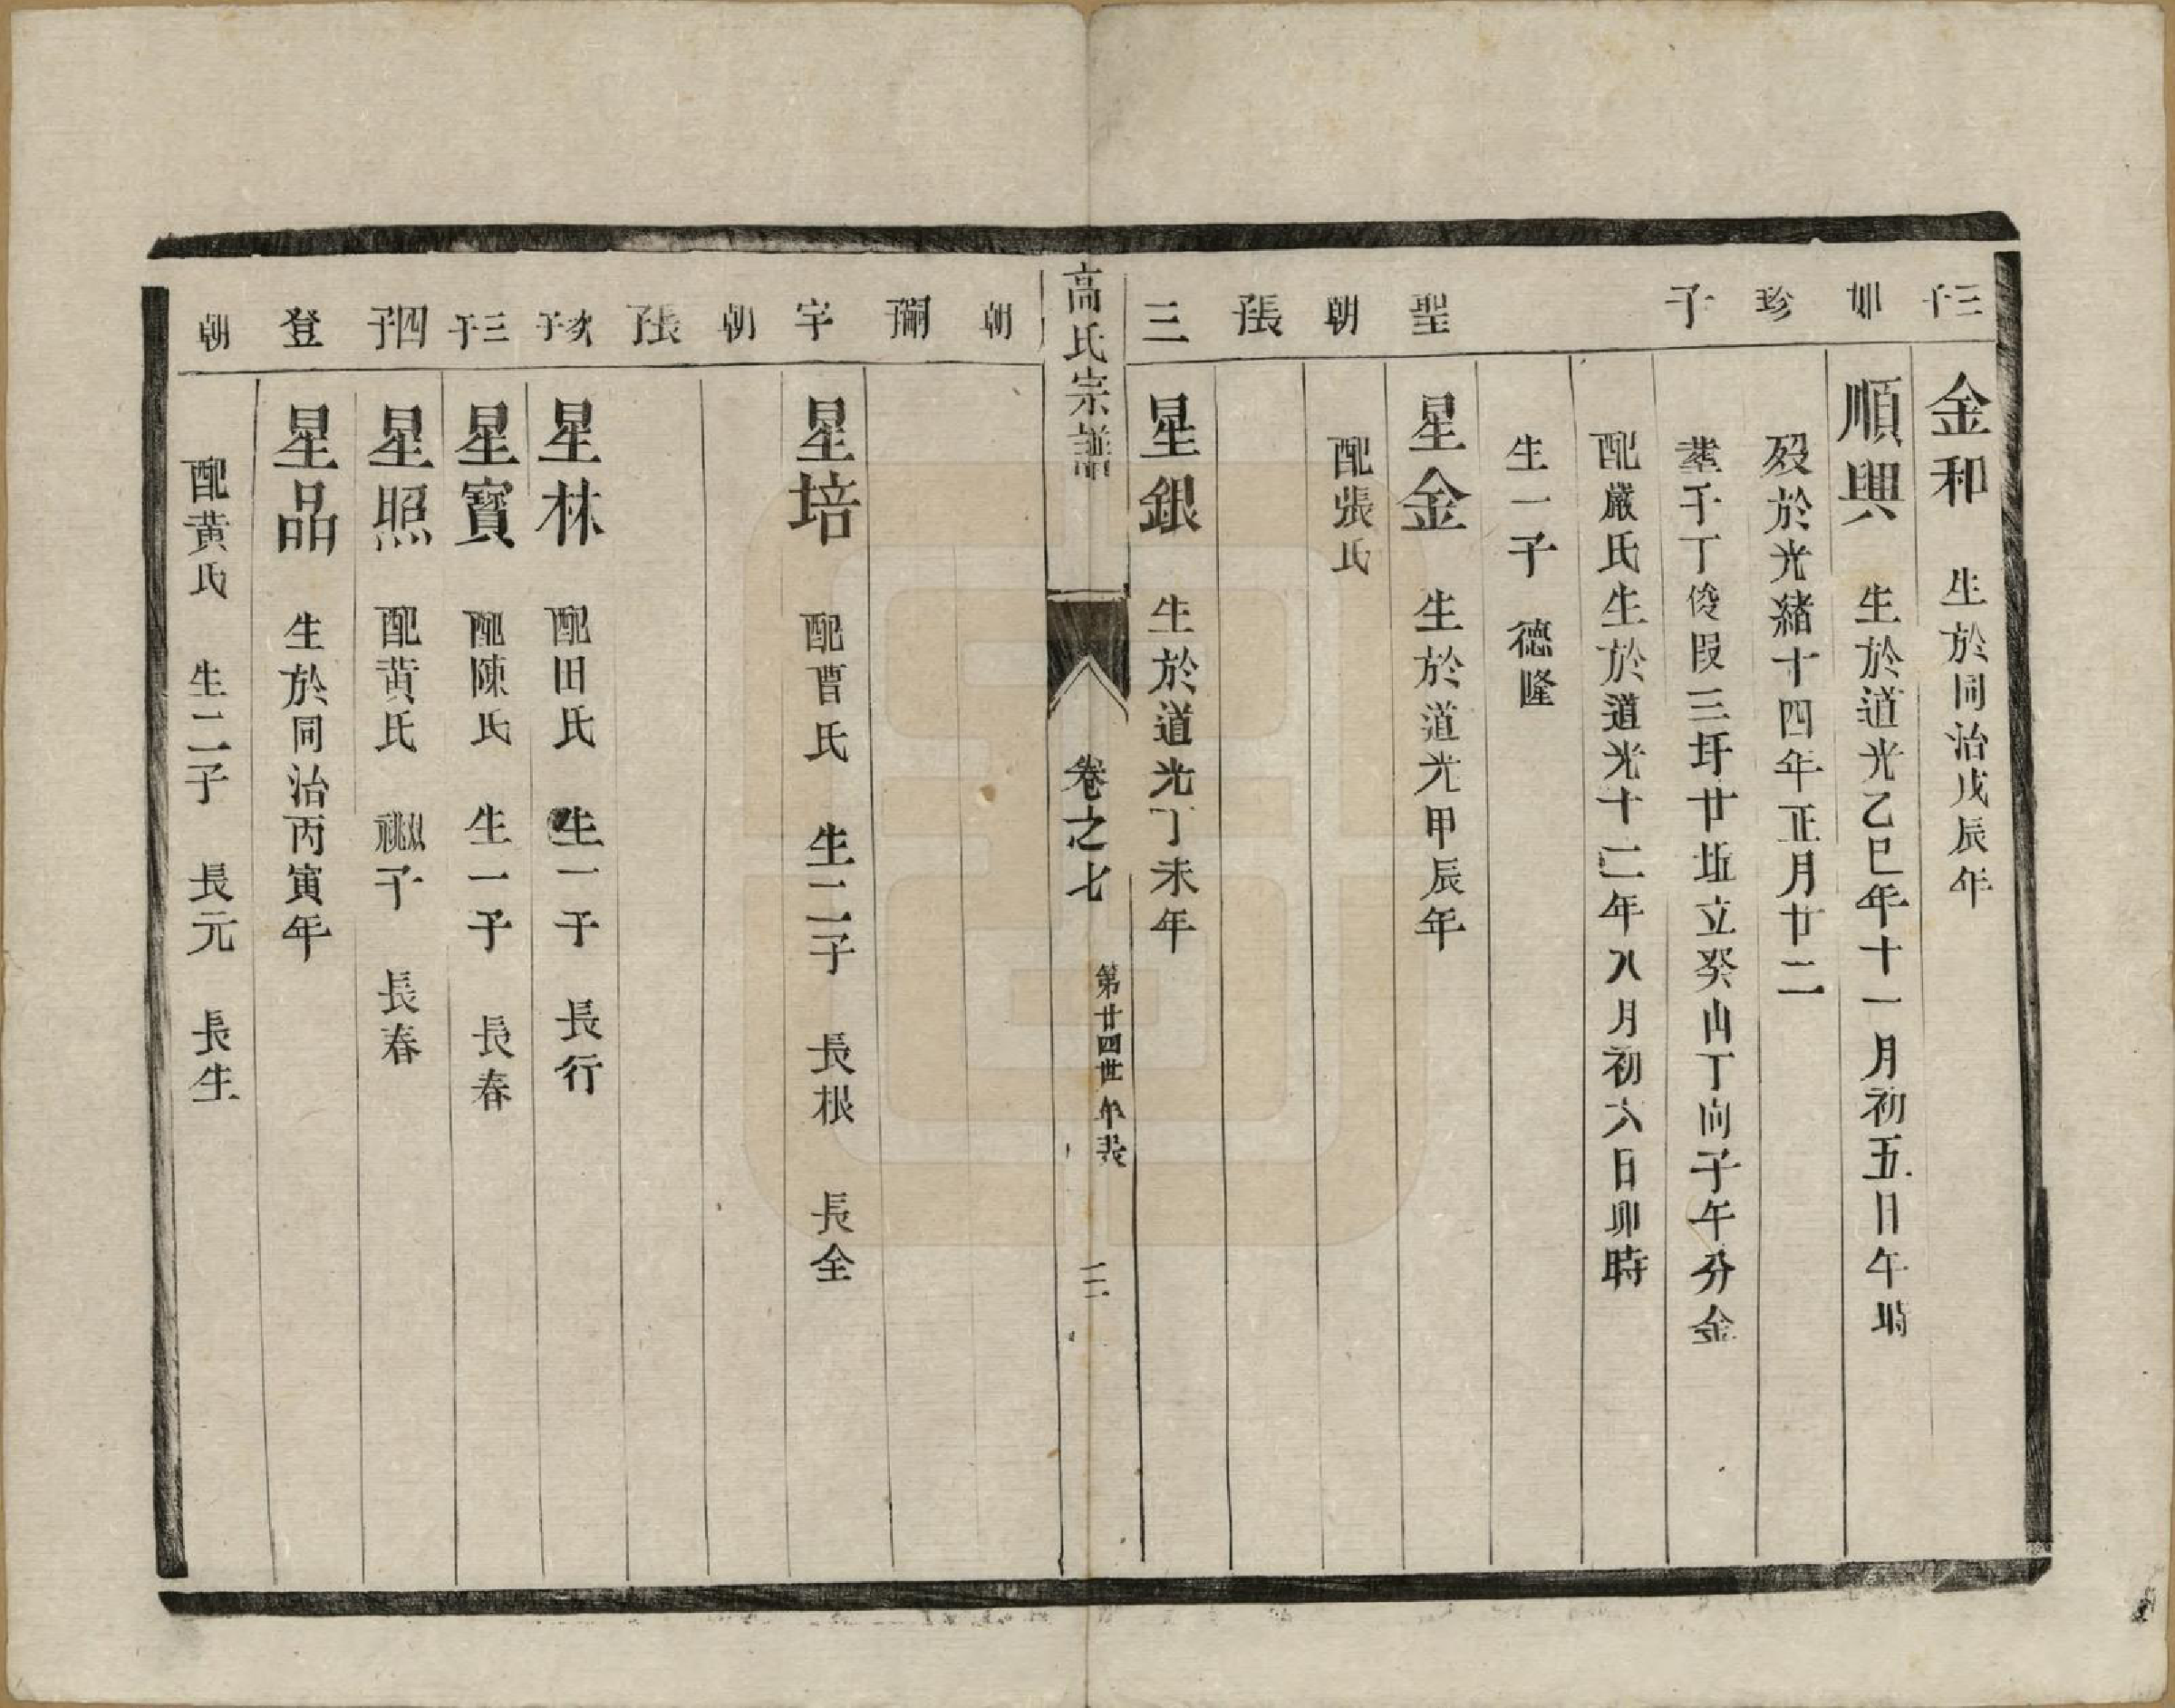 三子 金和 生於同治戊辰年
如 順興 生於道光乙巳年十一月初五日午時
珍 殁於光緒十四年正月廿二
子 塟千丁俊叚三圩廿坵立癸山丁向子午分金
配嚴氏生於道光十二年八月初六日卯時
生一子 德隆
聖 星金 生於道光甲辰年
朝 配張氏
張子
三 星銀 生於道光丁未年
高氏宗譜 卷之七 第廿四世年表 二
朝
彌
字 星培 配曹氏 生二子 長根 長全
朝
張子
次子 星林 配田氏 生一子 長行
三子 星寳 配陳氏 生一子 長春
四子 星照 配黄氏 祧子 長春
登 星品 生於同治丙寅年
朝 配黄氏 生二子 長元 長生